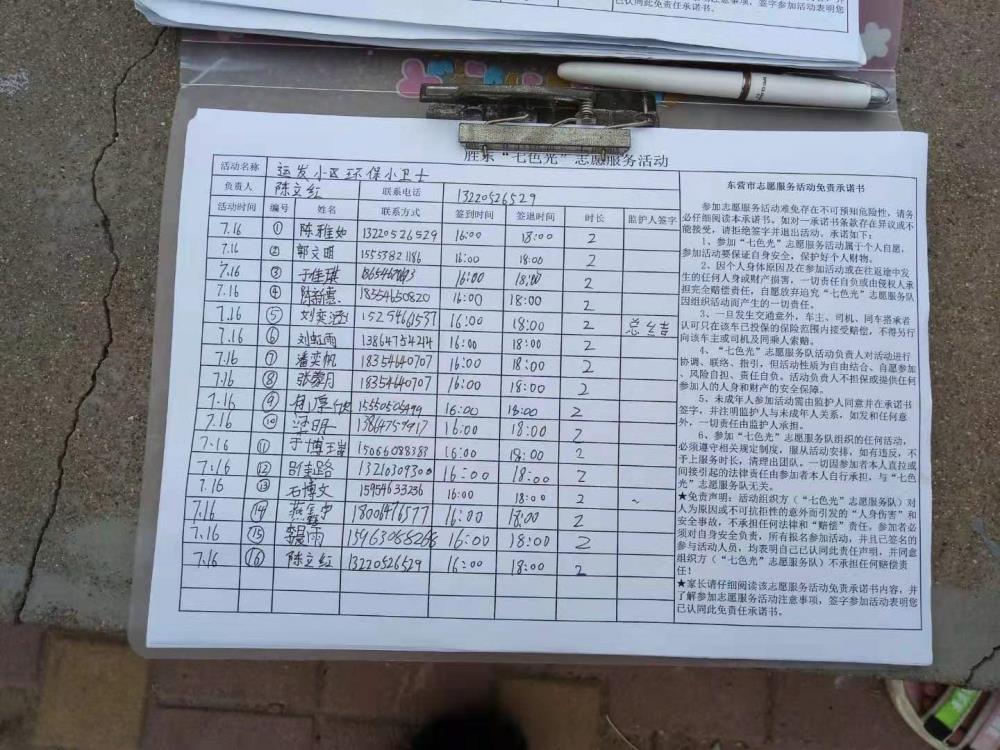 已认同此责任承诺书。
胜东“七色光”志愿服务活动
活动名称 运发小区环保小卫士
负责人 陈立红 联系电话 13220526529
活动时间 编号 姓名 联系方式 签到时间 签退时间 时长 监护人签字
7.16 ① 陈雅如 13220526529 16:00 18:00 2
7.16 ② 郭文明 15553821186 16:00 18:00 2
7.16 ③ 于佳琪 16:00 18:00 2
7.16 ④ 陈莉蕙 18354650820 16:00 18:00 2
7.16 ⑤ 刘奕涵 15254661537 16:00 18:00 2
7.16 ⑥ 刘虹雨 13864754214 16:00 18:00 2
7.16 ⑦ 潘奕帆 18354640707 16:00 18:00 2
7.16 ⑧ 张蒙月 18354640707 16:00 18:00 2
7.16 ⑨ 16:00 18:00 2
7.16 ⑩ 16:00 18:00 2
7.16 ⑪ 于博 15066088383 16:00 18:00 2
7.16 ⑫ 16:00 18:00 2
7.16 ⑬ 石博文 15954633236 16:00 18:00 2
7.16 ⑭ 16:00 18:00 2
7.16 ⑮ 雨 15963088268 16:00 18:00 2
7.16 ⑯ 陈立红 13220526529 16:00 18:00 2
东营市志愿服务活动免责承诺书
参加志愿服务活动难免存在不可预知危险性，请务
必仔细阅读本承诺书。如对一承诺书条款存在异议或不
能接受，请拒绝签字并退出活动。承诺如下：
1、参加“七色光”志愿服务活动属于个人自愿，
参加活动要保证自身安全，保护好个人财物。
2、因个人身体原因及在参加活动或在往返途中发
生的任何人身或财产损害，一切责任自负或由侵权人承
担完全赔偿责任，自愿放弃追究“七色光”志愿服务队
因组织活动而产生的一切责任。
3、一旦发生交通意外，车主、司机、同车搭承者
认可只在该车已投保的保险范围内接受赔偿，不得另行
向该车主或司机及同乘人索赔。
4、“七色光”志愿服务队活动负责人对活动进行
协调、联络、指引，但活动性质为自由结合、自愿参加
、风险自担、责任自负。活动负责人不担保或提供任何
参加人的人身和财产的安全保障。
5、未成年人参加活动需由监护人同意并在承诺书
签字，并注明监护人与未成年人关系，如发和任何意
外，一切责任由监护人承担。
6、参加“七色光”志愿服务队组织的任何活动，
必须遵守相关规定制度，服从活动安排，如有违反，不
予上服务时长，清理出团队。一切因参加者本人直拉或
间接引起的法律责任由参加者本人自行承担，与“七色
光”志愿服务队无关。
★免责声明：活动组织方（“七色光”志愿服务队）对
人为原因或不可抗拒性的意外而引发的“人身伤害”和
安全事故，不承担任何法律和“赔偿”责任。参加者必
须对自身安全负责，所有报名参加活动，并且已签名的
参与活动人员，均表明自己已认同此责任声明，并同意
组织方（“七色光”志愿服务队）不承担任何赔偿责
任！
★家长请仔细阅读该志愿服务活动免责承诺书内容，并
了解参加志愿服务活动注意事项，签字参加活动表明您
已认同此免责任承诺书。